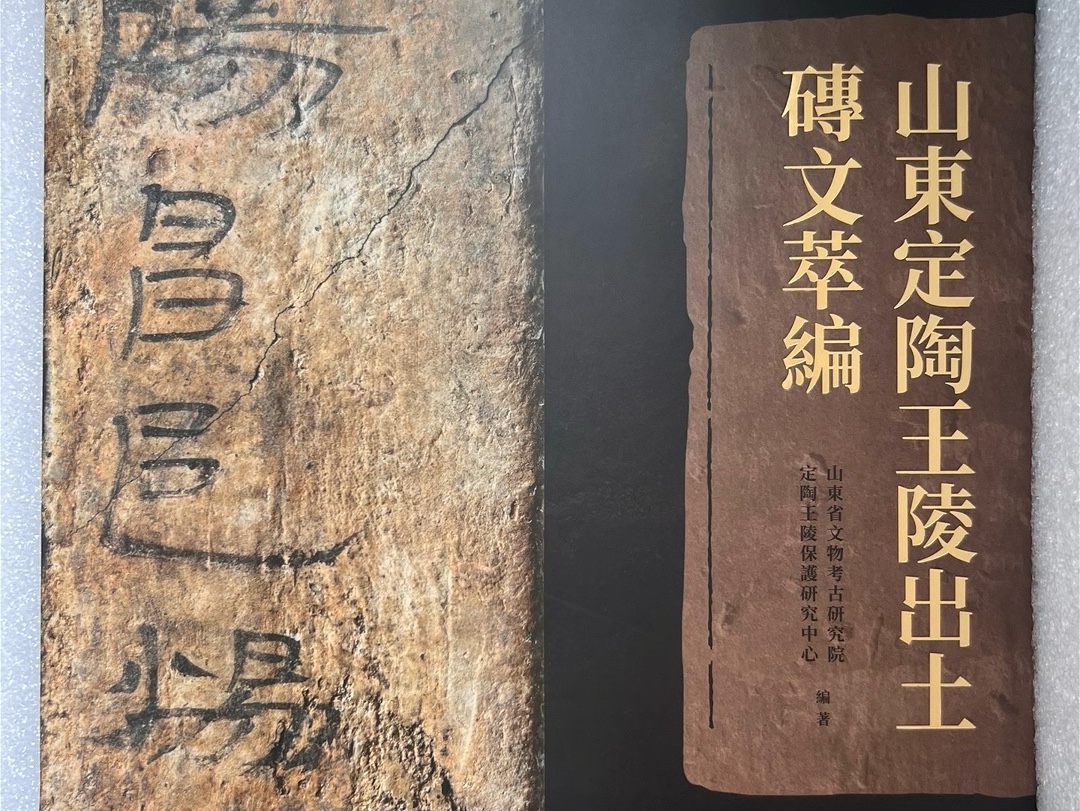 山東定陶王陵出土
磚文萃編
山東省文物考古研究院
定陶王陵保護研究中心
編著
昌邑